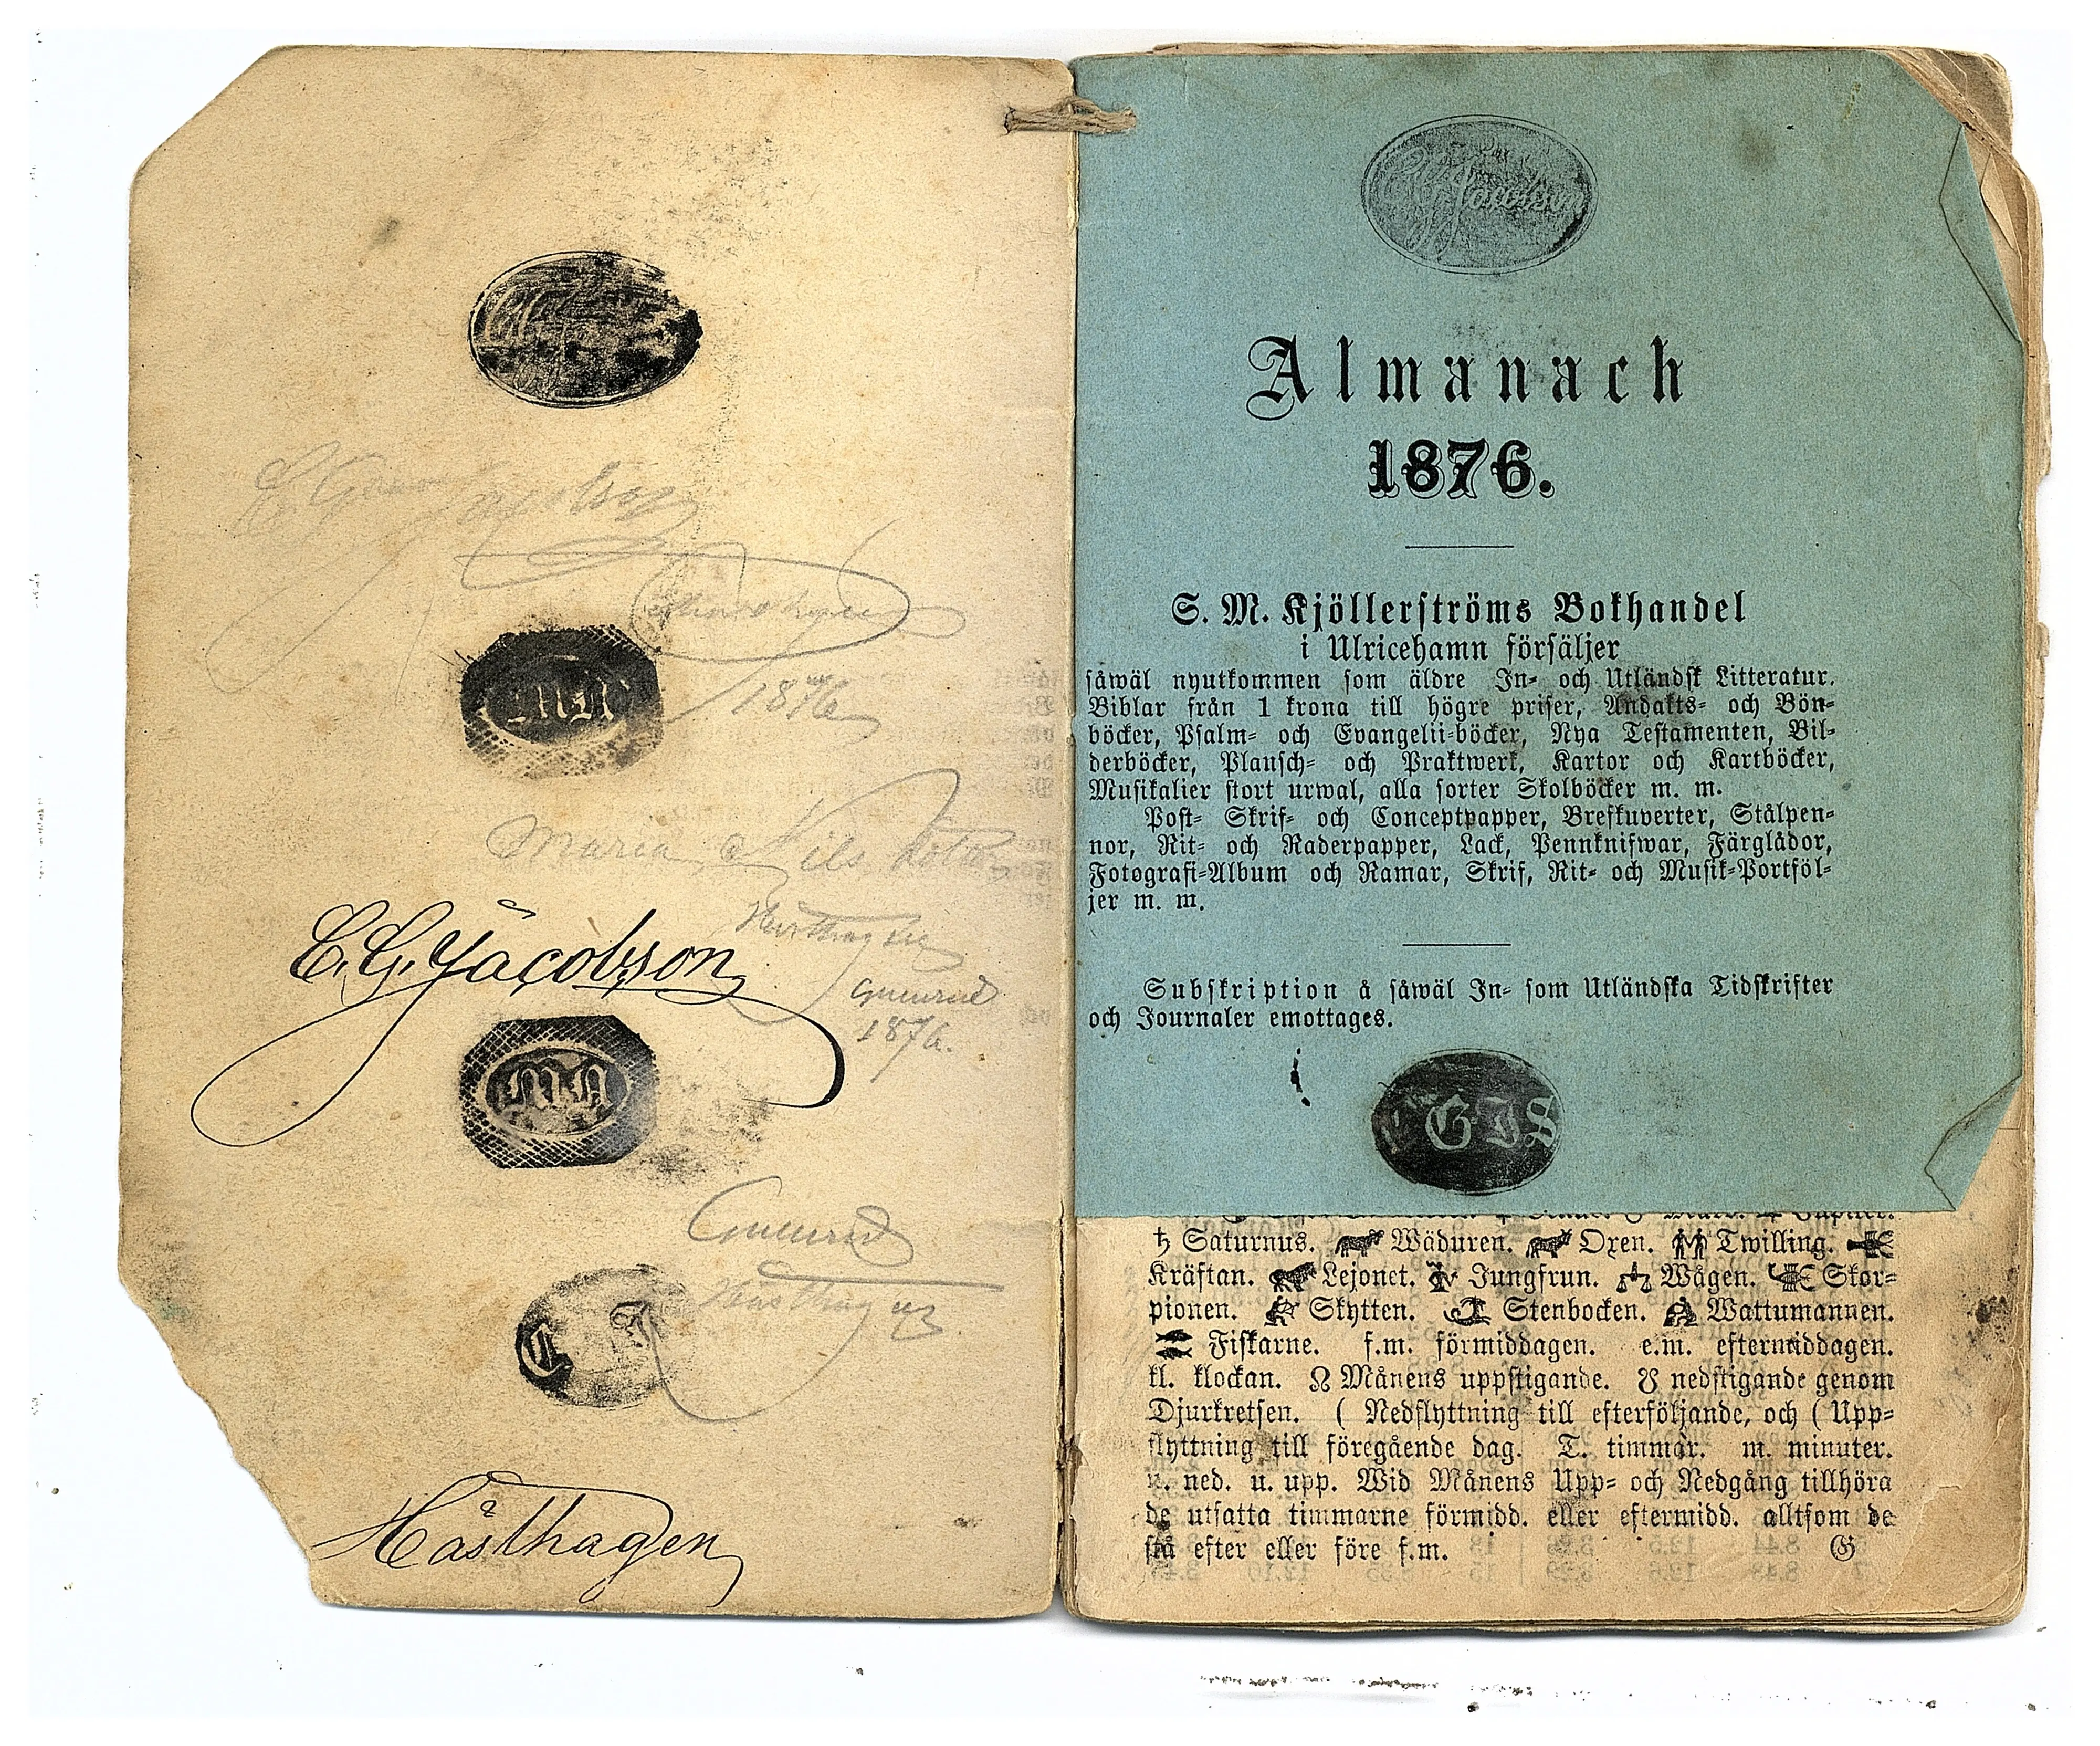 1876
Maria Nils
C. G. Jacobson
Gunnered
1876.
M N
Gunnered
C
Hästhagen
Jacobson
Almanach
1876.
S. M. Kjöllerströms Bokhandel
i Ulricehamn försäljer
såwäl nyutkommen som äldre In- och Utländsk Litteratur.
Biblar från 1 krona till högre priser, Andakts- och Bön-
böcker, Psalm- och Evangelii-böcker, Nya Testamenten, Bil-
derböcker, Plansch- och Praktwerk, Kartor och Kartböcker,
Musikalier stort urwal, alla sorter Skolböcker m. m.
Post- Skrif- och Conceptpapper, Brefkuverter, Stålpen-
nor, Rit- och Raderpapper, Lack, Pennknifwar, Färglådor,
Fotografi-Album och Ramar, Skrif, Rit- och Musik-Portföl-
jer m. m.
Subskription å såwäl In- som Utländska Tidskrifter
och Journaler emottages.
G J S
♄ Saturnus. Wäduren. Oxen. Twilling.
Kräftan. Lejonet. Jungfrun. Wågen. Skor-
pionen. Skytten. Stenbocken. Wattumannen.
Fiskarne. f.m. förmiddagen. e.m. eftermiddagen.
kl. klockan. ☊ Månens uppstigande. ☋ nedstigande genom
Djurkretsen. ( Nedflyttning till efterföljande, och ( Upp-
flyttning till föregående dag. T. timmar. m. minuter.
n. ned. u. upp. Wid Månens Upp- och Nedgång tillhöra
de utsatta timmarne förmidd. eller eftermidd. alltsom de
stå efter eller före f.m. G